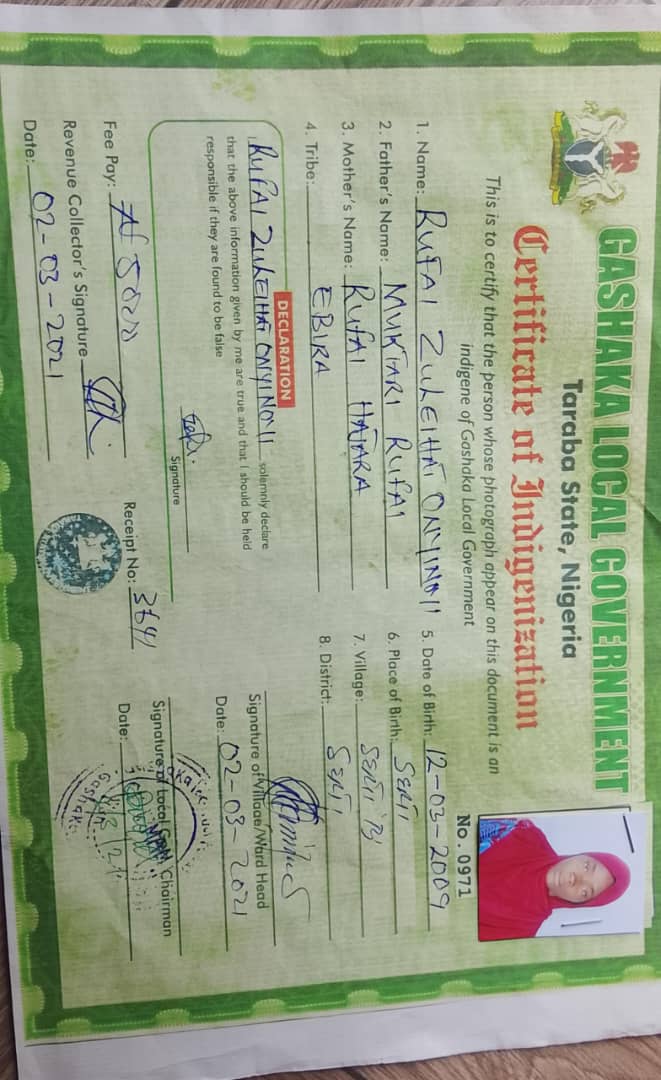 GASHAKA LOCAL GOVERNMENT
Taraba State, Nigeria
Certificate of Indigenization
This is to certify that the person whose photograph appear on this document is an
indigene of Gashaka Local Government
No. 0971
1. Name: RUFAI ZULEIHAT ONYINOYI
2. Father's Name: MUKTARI RUFAI
3. Mother's Name: RUFAI HAJARA
4. Tribe: EBIRA
5. Date of Birth: 12-03-2009
6. Place of Birth: SERTI
7. Village: SERTI 'B'
8. District: SERTI
DECLARATION
I, RUFAI ZULEIHAT ONYINOYI solemnly declare
that the above information given by me are true and that I should be held
responsible if they are found to be false
Signature
Fee Pay: ₦ 5000
Receipt No: 3641
Revenue Collector's Signature
Date: 02-03-2021
Signature of Village/Ward Head
Date: 02-03-2021
Signature of Local Govt Chairman
Date:
Gashaka